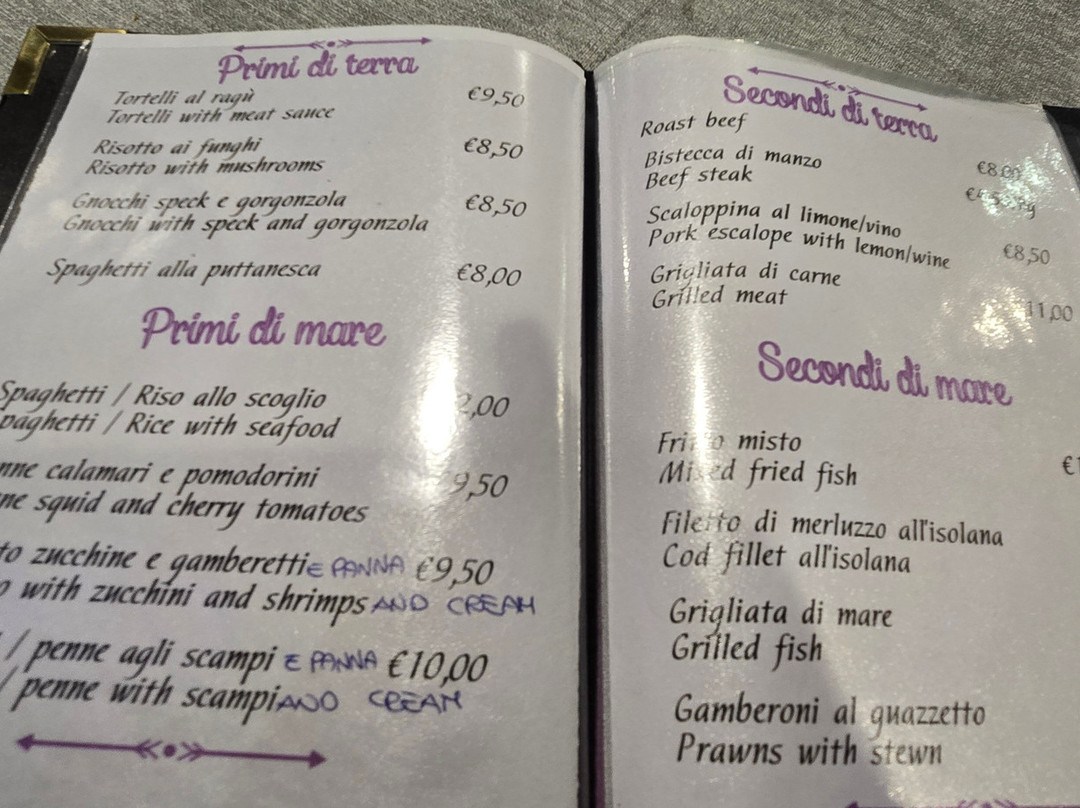 Primi di terra
Tortelli al ragù €9,50
Tortelli with meat sauce
Risotto ai funghi €8,50
Risotto with mushrooms
Gnocchi speck e gorgonzola €8,50
Gnocchi with speck and gorgonzola
Spaghetti alla puttanesca €8,00
Primi di mare
Spaghetti / Riso allo scoglio
/ Rice with seafood
calamari e pomodorini 9,50
squid and cherry tomatoes
zucchine e gamberetti E PANNA €9,50
with zucchini and shrimps AND CREAM
/ penne agli scampi E PANNA €10,00
/ penne with scampi AND CREAM
Secondi di terra
Roast beef €8,00
Bistecca di manzo
Beef steak
Scaloppina al limone/vino €8,50
Pork escalope with lemon/wine
Grigliata di carne 11,00
Grilled meat
Secondi di mare
Fritto misto
Mixed fried fish
Filetto di merluzzo all'isolana
Cod fillet all'isolana
Grigliata di mare
Grilled fish
Gamberoni al guazzetto
Prawns with stewn